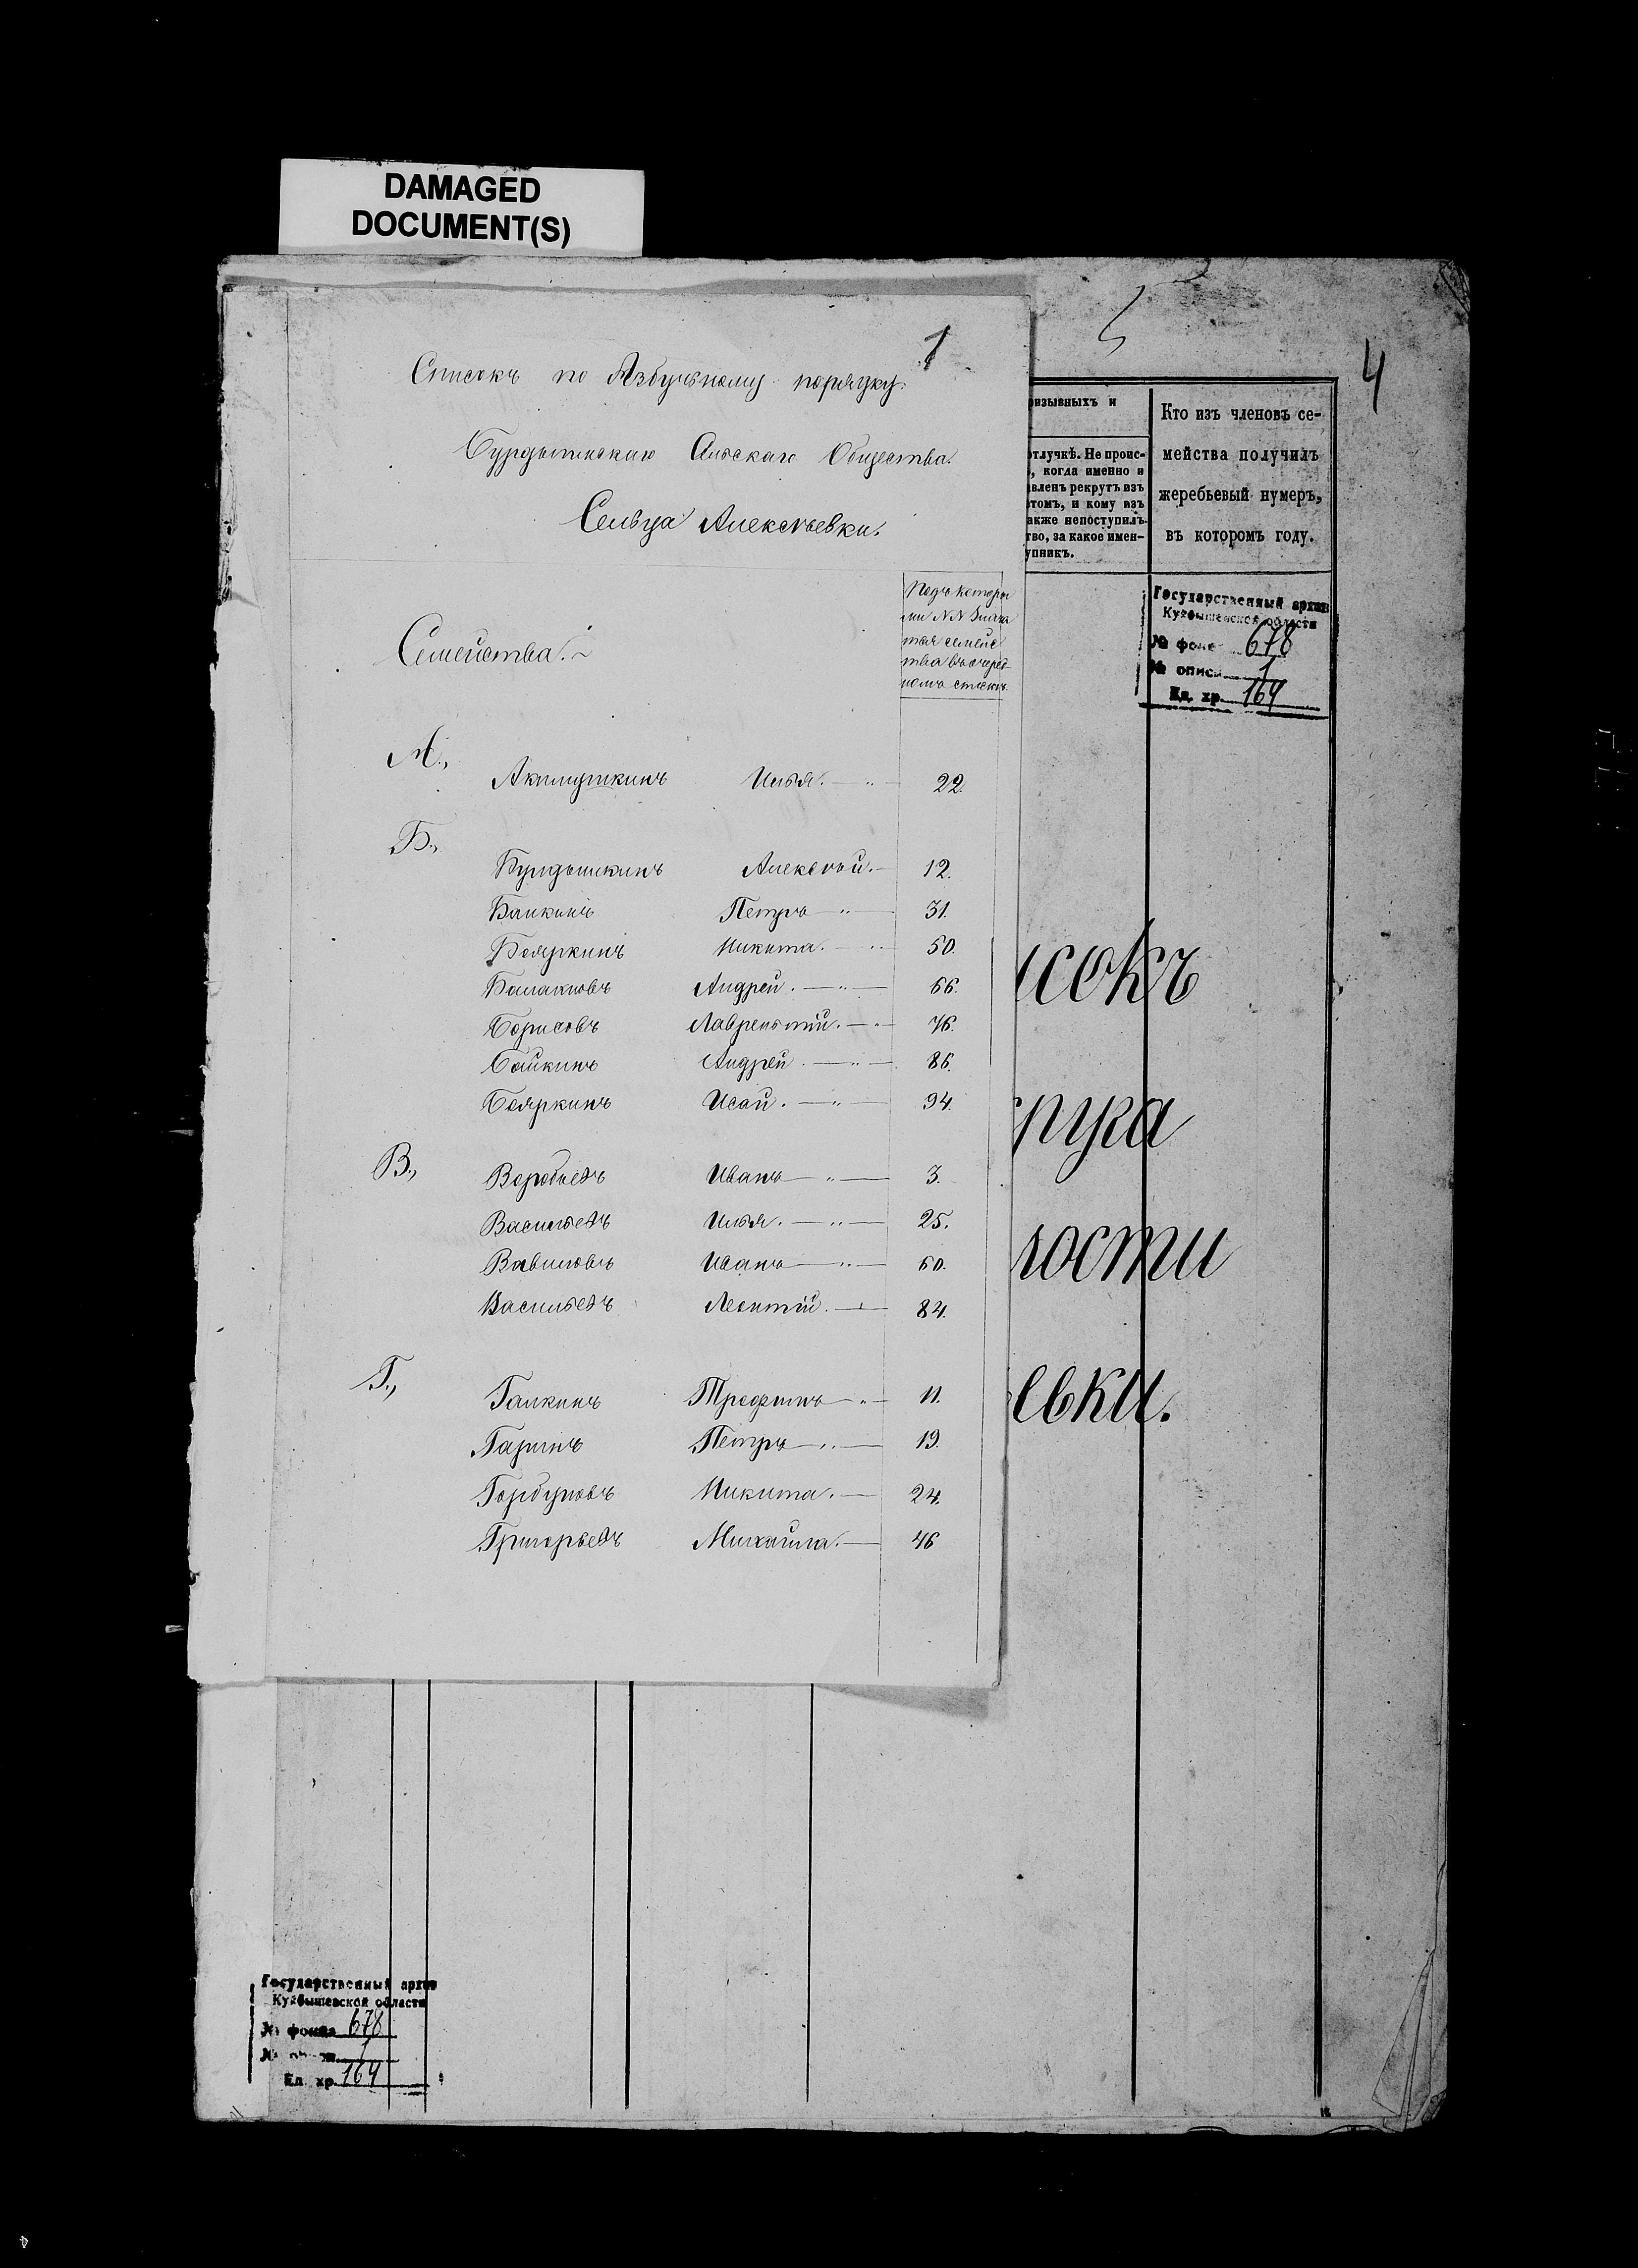 DAMAGED
DOCUMENT(S)
1
Списокъ по Азбучному порядку
Общества.
Сельца Алексѣевки.
Семейства.
Подъ которы
ми NN Значи
тся семейс
тва въ очеред
номъ спискѣ
А.,
Акимушкинъ Илья. 22.
Б.,
Бурдышкинъ Алексѣй. 12.
Банкинъ Петръ 31.
Бояркинъ Никита. 50.
Балакловъ Андрей. 66.
Борисовъ Лаврентій. 76.
Бойкинъ Андрей 86.
Бояркинъ Исай. 94.
В.,
Воробьевъ Иванъ 3.
Васильевъ Илья. 25.
Вавиловъ Иванъ 60.
Васильевъ Леонтій. 84.
Г.,
Галкинъ Трофимъ 11.
Гаринъ Петръ 19.
Горбуновъ Никита. 24.
Григорьевъ Михайла. 46
4
изывныхъ и
тлучкѣ. Не проис-
, когда именно и
вленъ рекрутъ изъ
томъ, и кому изъ
акже непоступилъ
тво, за какое имен-
упникъ.
Кто изъ членовъ се-
мейства получилъ
жеребьевый нумеръ,
въ которомъ году.
Государственный архив
Куйбышевской области
№ фонда 678
№ описи 1
Ед. хр. 164
исокъ
руга
лости
евки.
Государственный архив
Куйбышевской области
№ фонда 678
№ описи 1
Ед. хр. 164